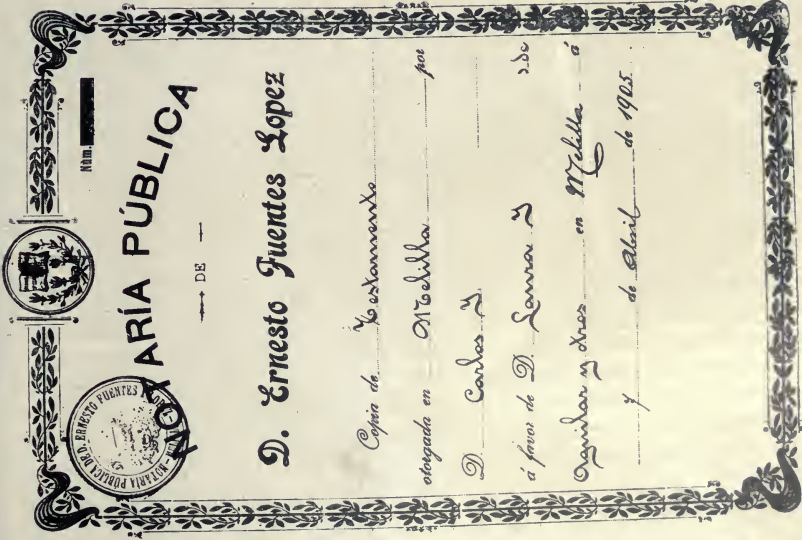 Núm.
NOTARÍA PÚBLICA
DE
D. Ernesto Fuentes Lopez
Copia de Testamento
otorgada en Melilla por
D. Carlos Y
á favor de D. Laura Y de
Aguilar y otros en Melilla á
7 de Abril de 1905.
NOTARIA PÚBLICA DE D. ERNESTO FUENTES